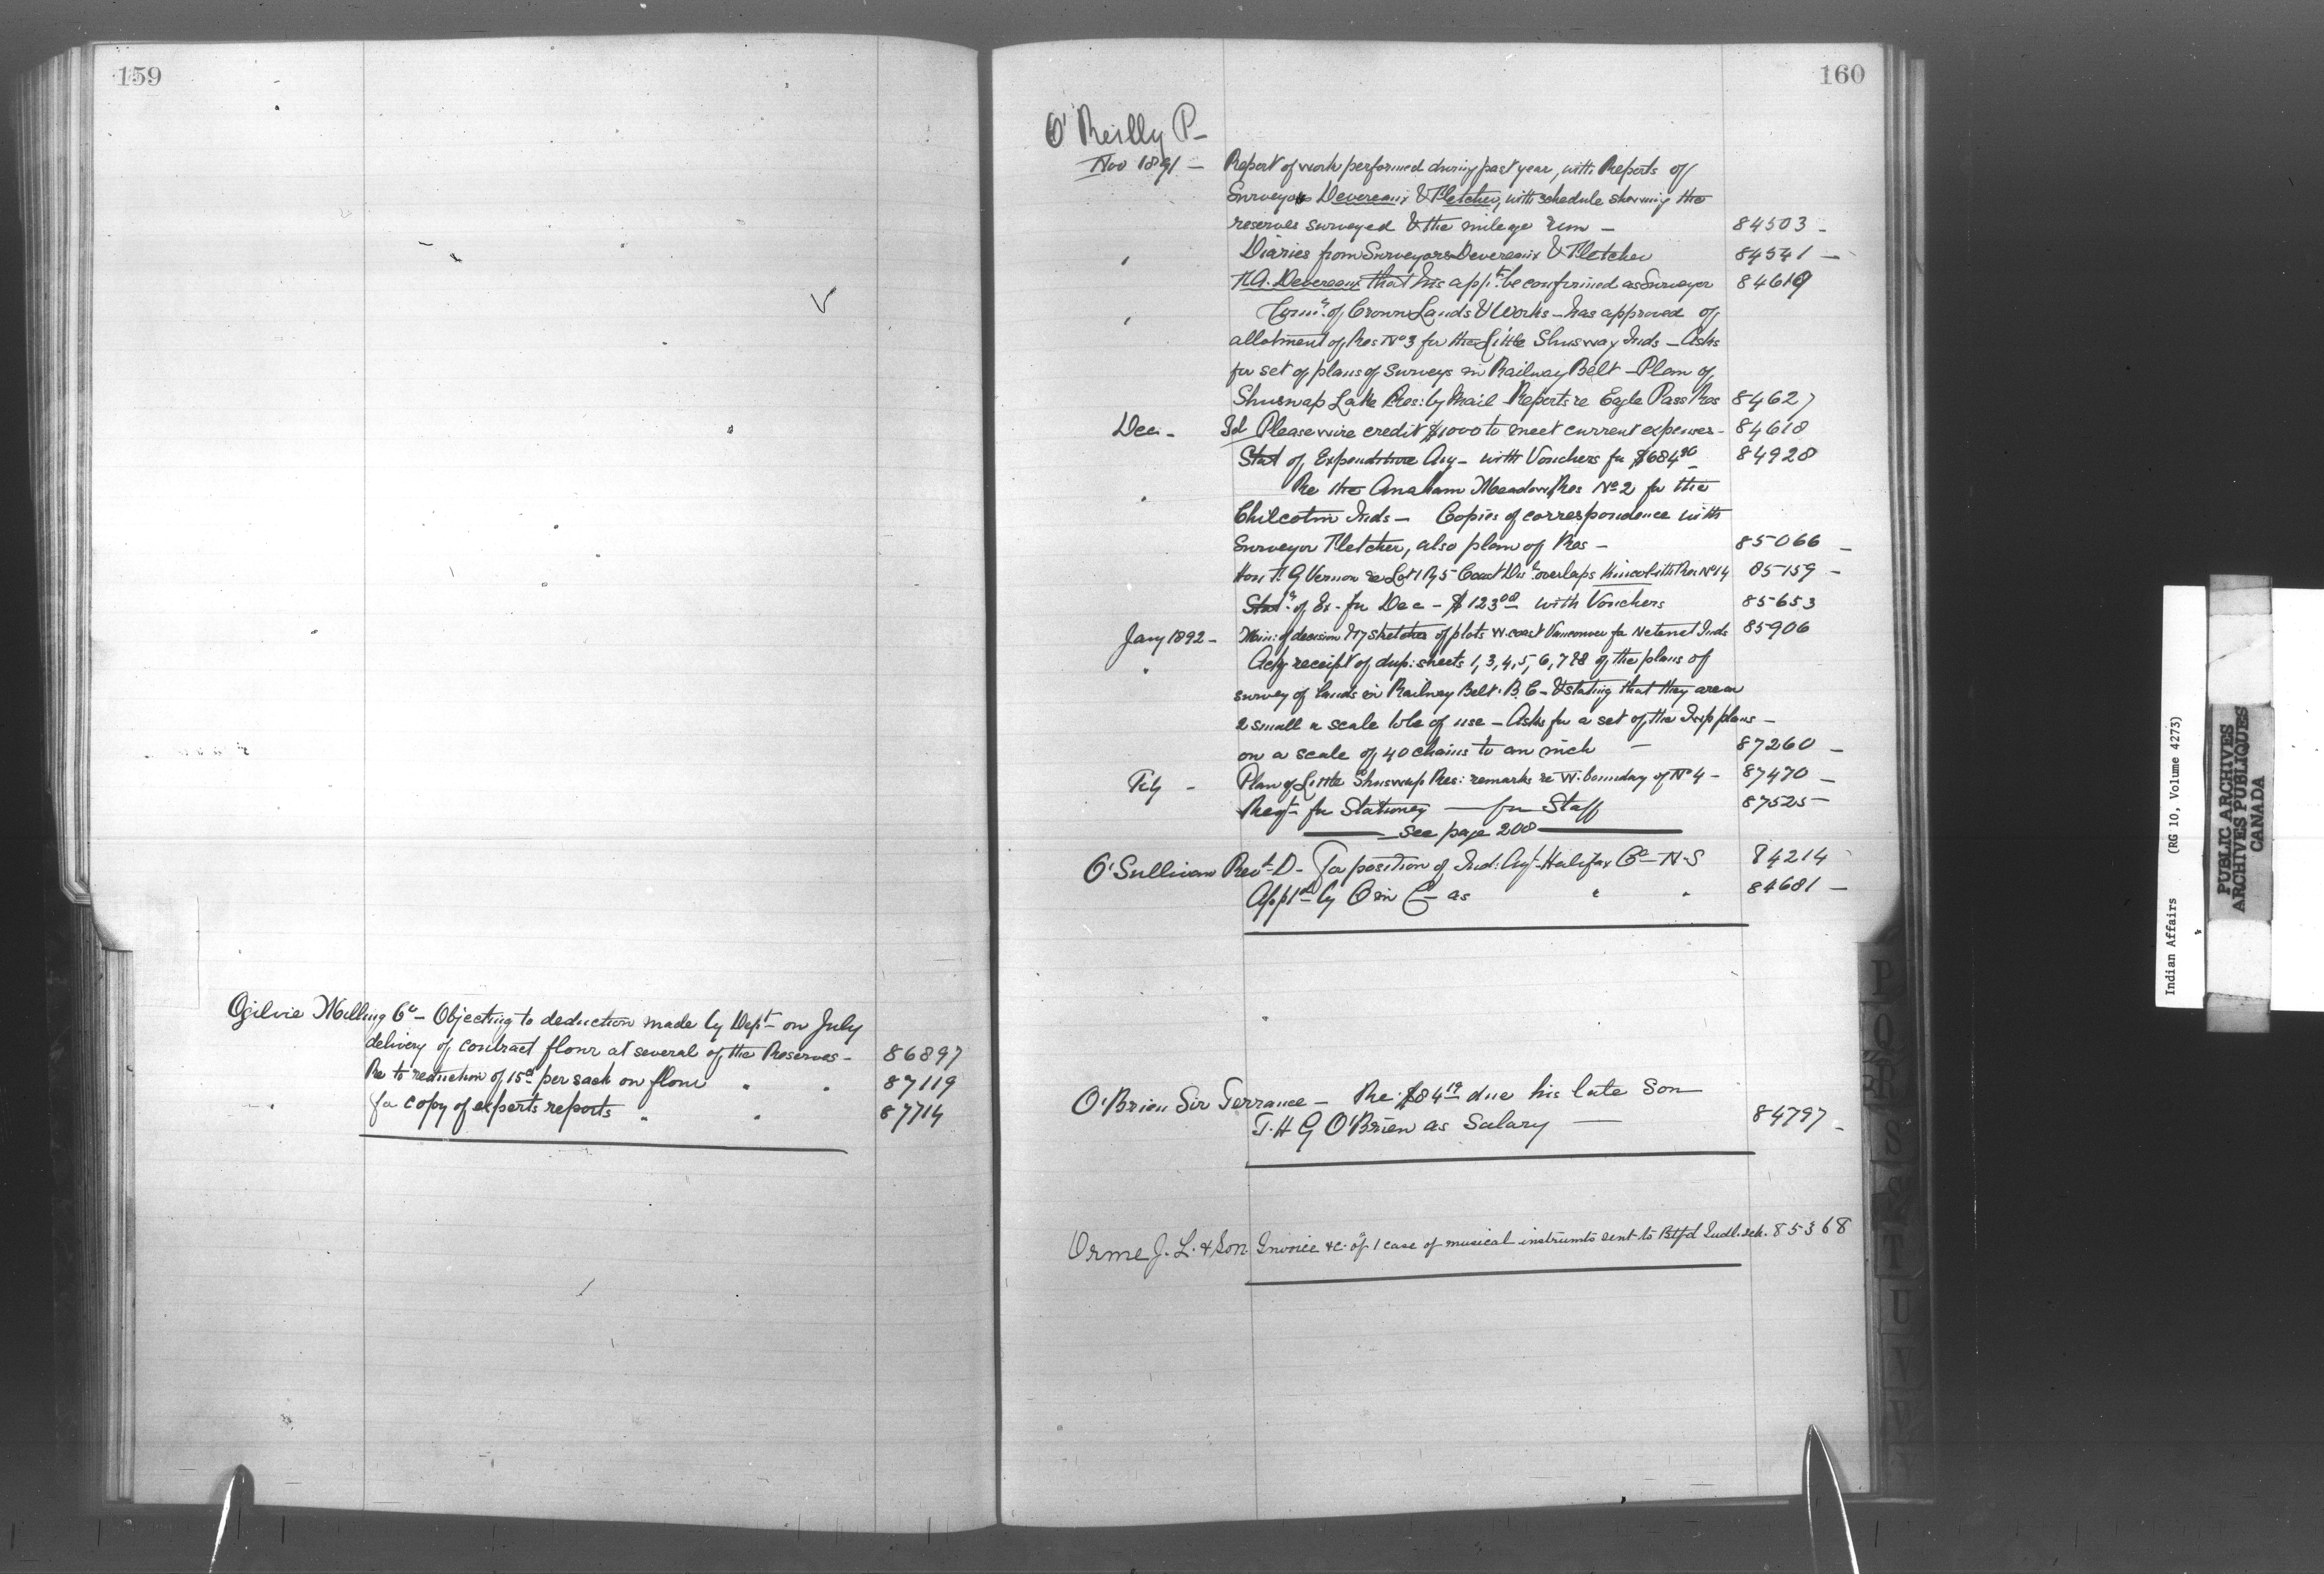 159
Ogilvie Milling Co – Objecting to deduction made by Dept on July
delivery of contract flour at several of the Reserves – 86897
Re to reduction of 15c per sack on flour " " 87119
for copy of experts reports " " 87714
160
O'Reilly P –
Nov 1891 – Report of work performed during past year, with Reports of
Surveyors Devereaux & Fletcher, with schedule showing the
reserves surveyed & the mileage run – 84503 –
" Diaries from Surveyors Devereaux & Fletcher 84541 –
F.A. Devereaux that his appt be confirmed as Surveyor 84619
" Comr of Crown Lands & Works – has approved of
allotment of Res No 3 for the Little Shuswap Inds – Asks
for set of plans of surveys in Railway Belt – Plan of
Shuswap Lake Res: by Mail Reports re Eagle Pass Res 84627
Dec – Id Please wire credit $1000 to meet current expenses – 84618
Stat of Expenditure Aug – with Vouchers for $684.90 – 84928
" Re the Anaham Meadow Res No 2 for the
Chilcotin Inds – Copies of correspondence with
Surveyor Fletcher, also plan of Res – 85066 –
Hon F G Vernon re Lot 1 R 5 Coast Dis overlaps Kincolith Res No 14 85159 –
Stat of Ex. for Dec – $123.00 with Vouchers 85653
Jany 1892 – Min: of decision & 17 sketches of plots W. coast Vancouver for Netenet Inds 85906
" Ackg receipt of dup: sheets 1, 3, 4, 5, 6, 7 & 8 of the plans of
survey of lands in Railway Belt. B.C – & stating that they are on
2 small a scale to be of use – Asks for a set of the Twp plans –
on a scale of 40 chains to an inch – 87260 –
Feby – Plan of Little Shuswap Res: remarks re W. boundary of No 4 – 87470 –
Reqt for Stationery – for Staff 87525 –
See page 208
O'Sullivan Revt D – For position of Ind: Agt Halifax Co – N.S 84214
Apptd by O in C – as " " 84681 –
O'Brien Sir Terrance – Re: $84.19 due his late Son
T. H G O'Brien as Salary – 84797 –
Orme J. L. & Son Invoice &c. of 1 case of musical instrumts sent to Btfd Indl. Sch. 85368
P
Q
R
S
T
U
V
Indian Affairs (RG 10, Volume 4273)
PUBLIC ARCHIVES
ARCHIVES PUBLIQUES
CANADA